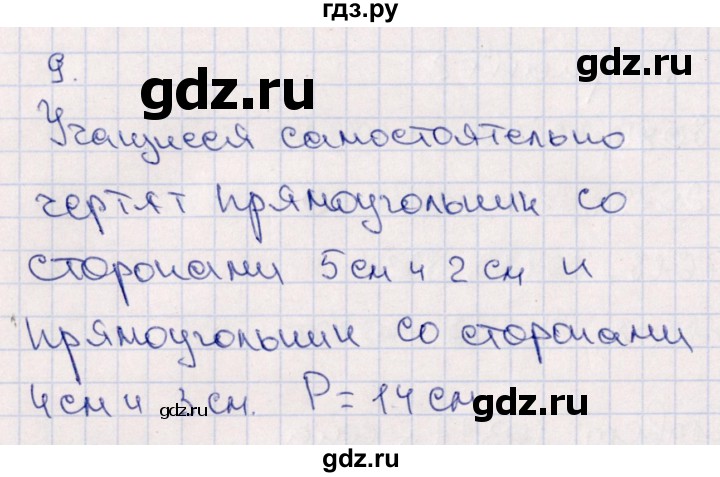 гдз.ру
9.
gdz.ru
gdz.ru
Учащиеся самостоятельно
чертят прямоугольник со
сторонами 5 см и 2 см и
прямоугольник со сторонами
4 см и 3 см. P = 14 см
gdz.ru
gdz.ru
gdz.ru